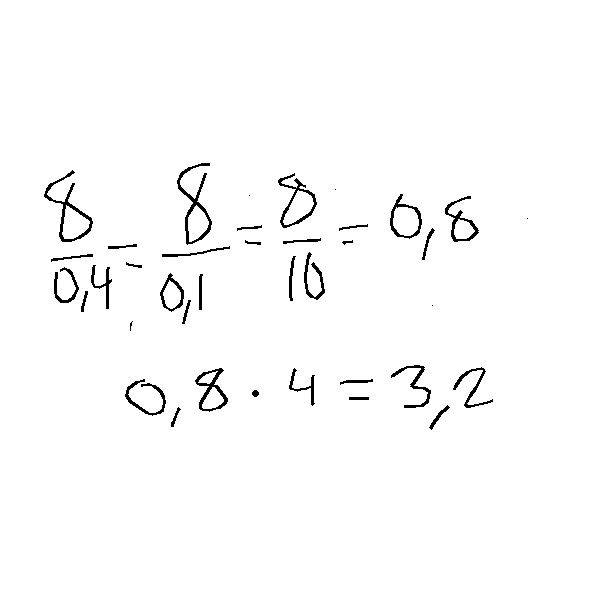 8/0,4 = 8/0,1 = 8/10 = 0,8
0,8 · 4 = 3,2